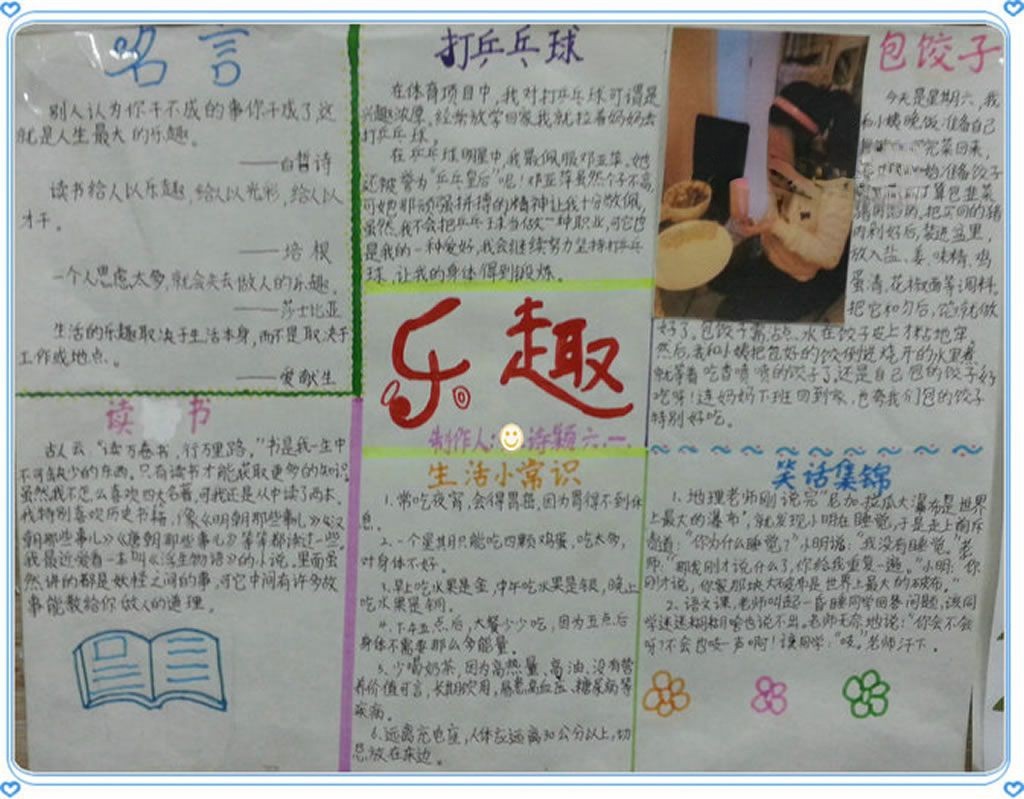 名言
别人认为你干不成的事你干成了，这
就是人生最大的乐趣。
——白哲诗
读书给人以乐趣，给人以光彩，给人以
才干。
——培根
一个人思虑太多，就会失去做人的乐趣。
——莎士比亚
生活的乐趣取决于生活本身，而不是取决于
工作或地点。
——爱献生
读书
古人云：“读万卷书，行万里路。”书是我一生中
不可缺少的东西。只有读书才能获取更多的知识。
虽然，我不怎么喜欢四大名著，可我还是从中读了两本。
我特别喜欢历史书籍，像《明朝那些事儿》《汉
朝那些事儿》《唐朝那些事儿》等等都读过一些。
我最近爱看一本叫《浮生物语》的小说，里面虽
然讲的都是妖怪之间的事，可它中间有许多故
事能教给你做人的道理。
打乒乓球
在体育项目中，我对打乒乓球可谓是
兴趣浓厚，经常放学回家，我就拉着妈妈去
打乒乓球。
在乒乓球明星中，我最佩服邓亚萍，她
还被誉为“乒乓皇后”呢！邓亚萍虽然个子不高，
可她那顽强拼搏的精神让我十分敬佩，
虽然，我不会把乒乓球当做一种职业，可它也
是我的一种爱好，我会继续努力坚持打乒乓
球，让我的身体得到锻炼。
乐趣
制作人：诗颖 六.一
生活小常识
1.常吃夜宵，会得胃癌，因为胃得不到休
息。
2.一个星期只能吃四颗鸡蛋，吃太多，
对身体不好。
3.早上吃水果是金，中午吃水果是银，晚上
吃水果是铜。
4.下午五点后，大餐少少吃，因为五点后
身体不需要那么多能量。
5.少喝奶茶，因为高热量、高油，没有营
养价值可言，长期饮用，易患高血压、糖尿病等
疾病。
6.远离充电座，人体应远离30公分以上，切
忌放在床边。
包饺子
今天是星期六，我
和小姨晚饭准备自己
完菜回来，
准备饺子
算包韭菜
把买回的猪
肉剁好后，装进盆里，
放入盐、姜、味精、鸡
蛋清、花椒面等调料，
把它和匀后，馅就做
好了。包饺子需沾点水在饺子皮上才粘地牢，
然后，我和小姨把包好的饺子倒进烧开的水里煮，
就等着吃香喷喷的饺子了，还是自己包的饺子好
吃呀！连妈妈下班回到家，也夸我们包的饺子
特别好吃。
笑话集锦
1.地理老师刚说完“尼加拉瓜大瀑布是世界
上最大的瀑布”，就发现小明在睡觉，于是走上前斥
责道：“你为什么睡觉？”小明说：“我没有睡觉。”老
师：“那我刚才说什么了，你给我重复一遍。”小明：“你
刚才说，你家那块大破布是世界上最大的破布。”
2.语文课，老师叫起一昏睡同学回答问题，该同
学迷迷糊糊啥也说不出。老师无奈地说：“你会不会
呀？不会也吱一声啊！”该同学：“吱。”老师汗下。